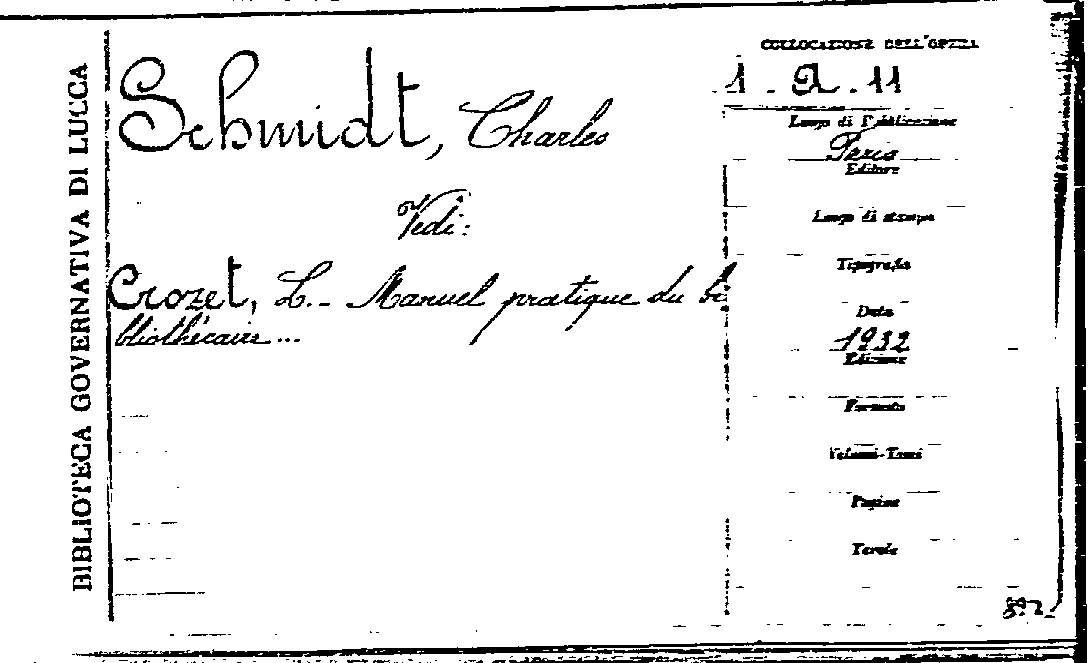 BIBLIOTECA GOVERNATIVA DI LUCCA
Schmidt, Charles
Vedi:
Crozet, L. - Manuel pratique du bi
bliothécaire ...
COLLOCAZIONE DELL'OPERA
1 - Q. 11
Luogo di Pubblicazione
Paris
Editore
Luogo di stampa
Tipografia
Data
1932
Edizione
Formato
Volumi-Tomi
Pagine
Tavole